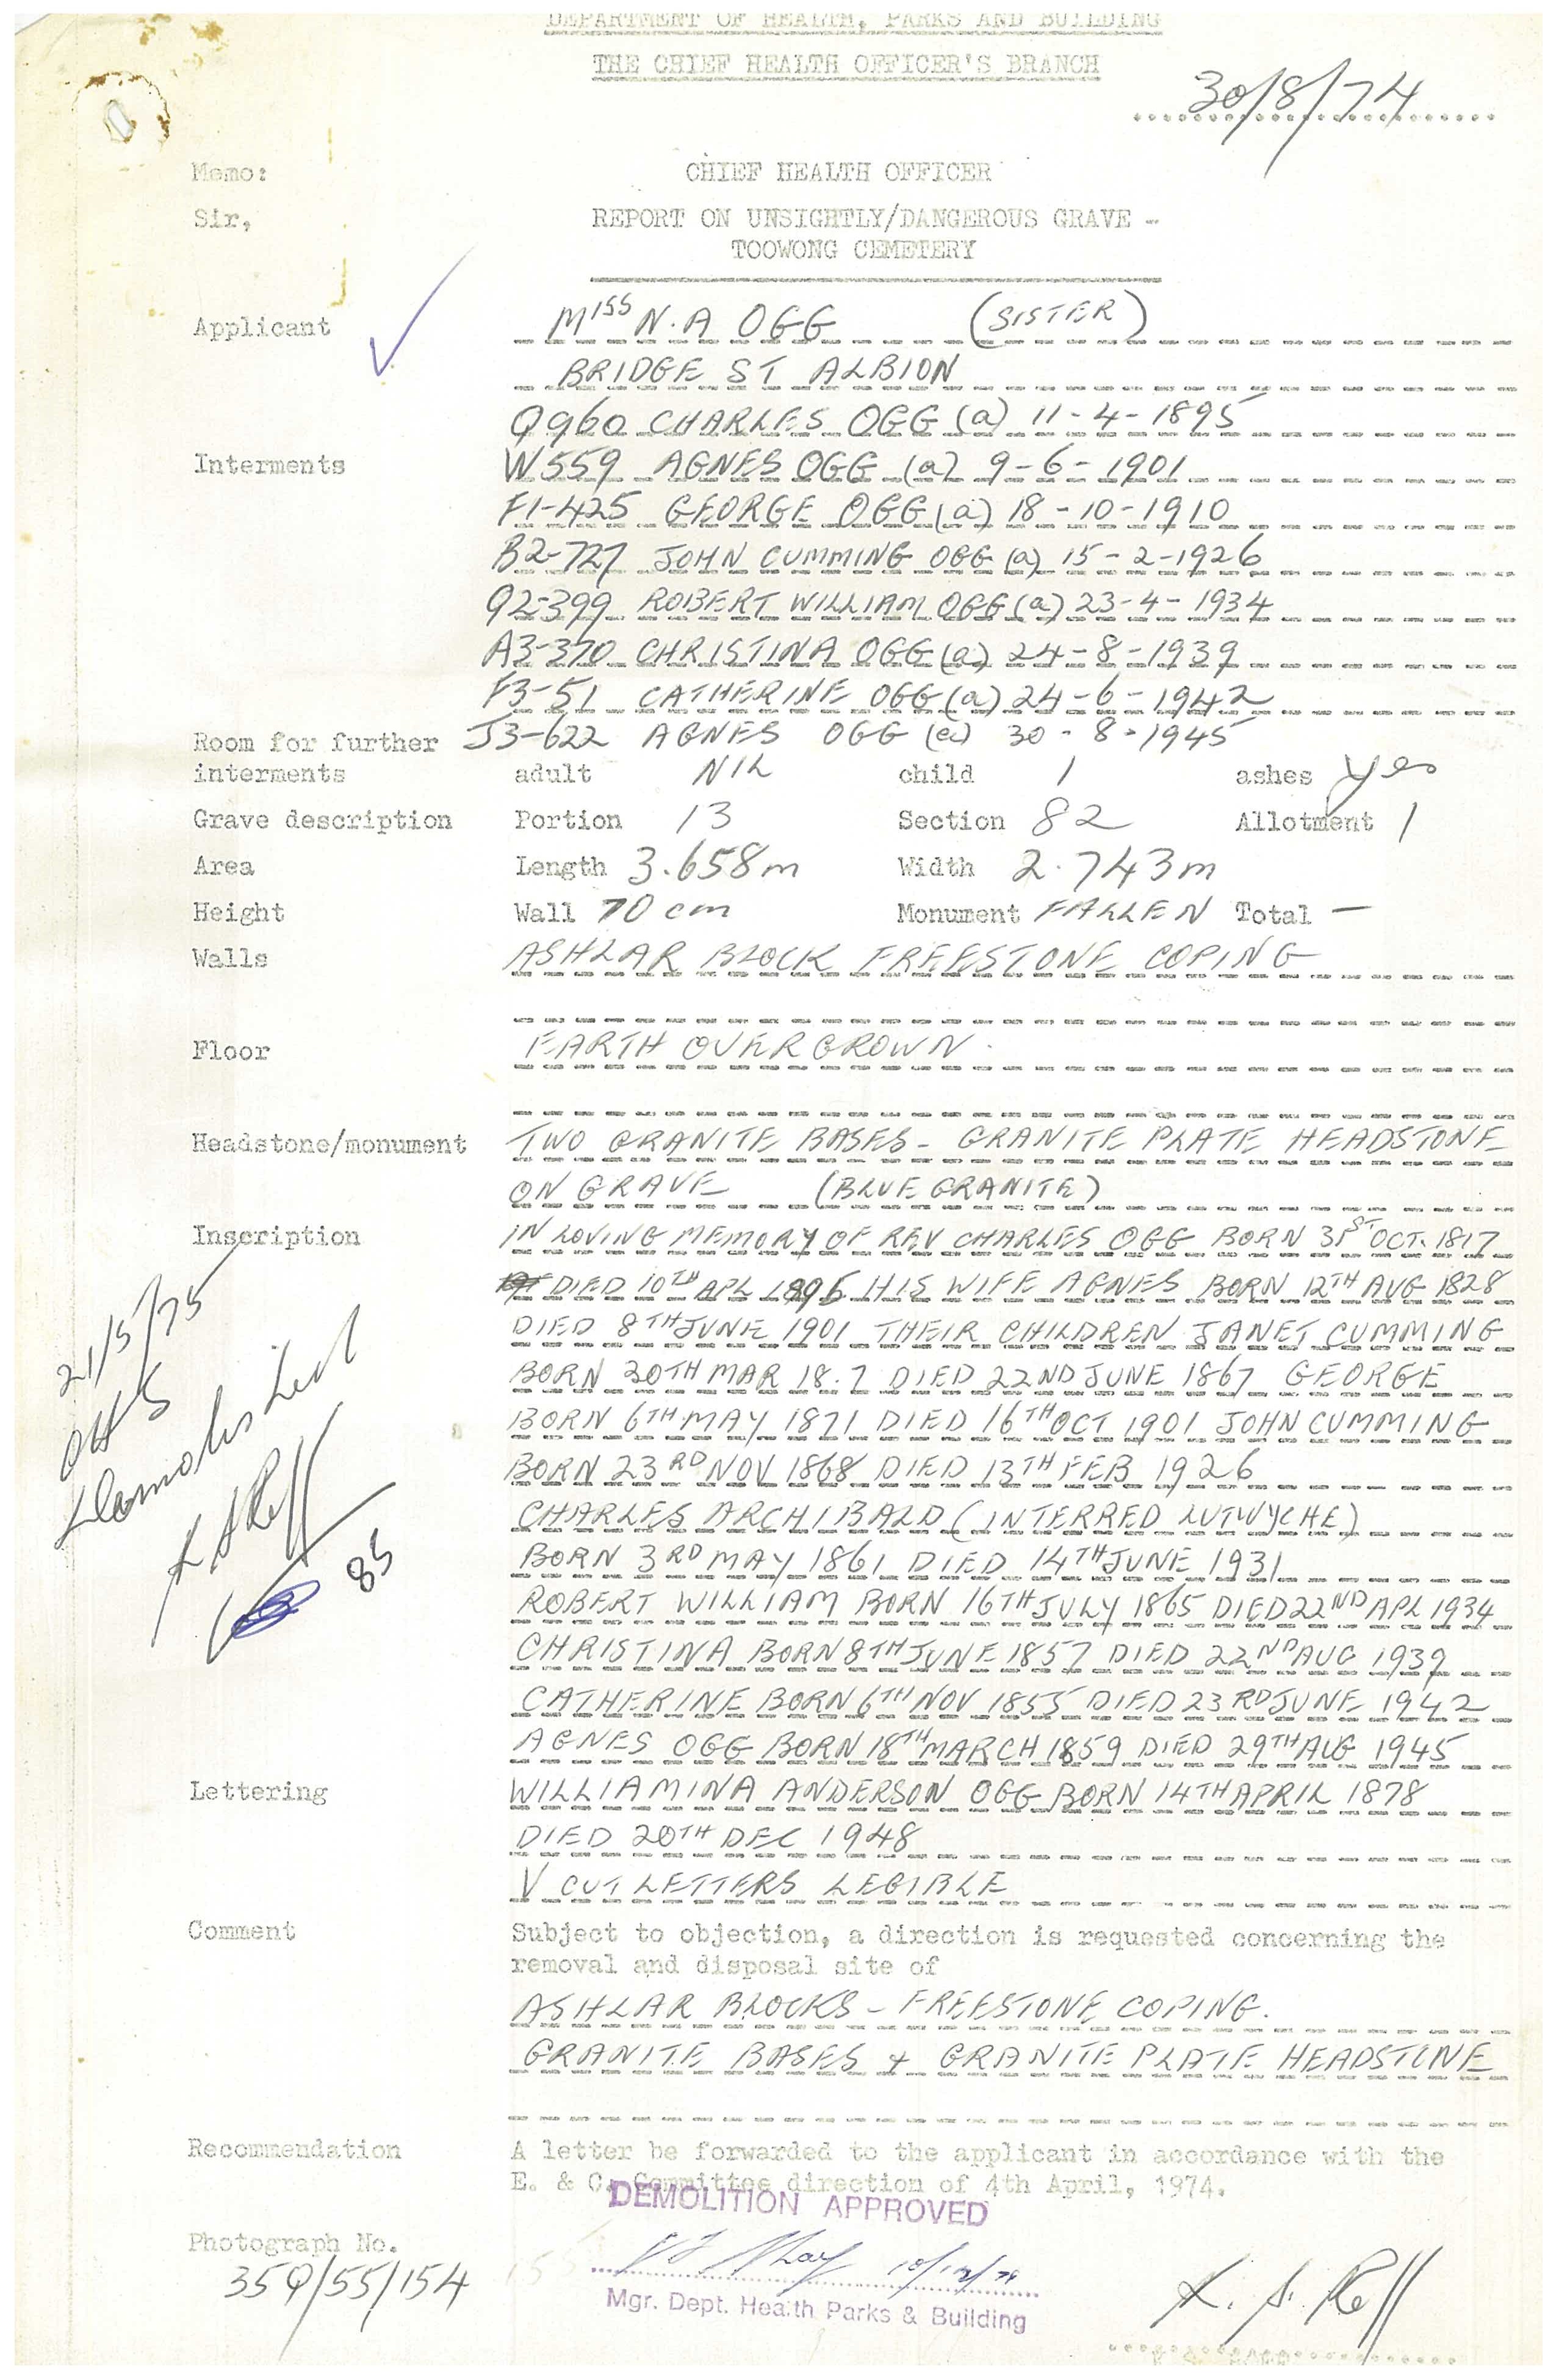 DEPARTMENT OF HEALTH, PARKS AND BUILDING
THE CHIEF HEALTH OFFICER'S BRANCH
30/8/74
Memo: CHIEF HEALTH OFFICER
Sir, REPORT ON UNSIGHTLY/DANGEROUS GRAVE -
TOOWONG CEMETERY
Applicant MISS N.A OGG (SISTER)
BRIDGE ST ALBION
Q960 CHARLES OGG (a) 11-4-1895
Interments W559 AGNES OGG (a) 9-6-1901
F1-425 GEORGE OGG (a) 18-10-1910
B2-727 JOHN CUMMING OGG (a) 15-2-1926
Q2-399 ROBERT WILLIAM OGG (a) 23-4-1934
A3-370 CHRISTINA OGG (a) 24-8-1939
F3-51 CATHERINE OGG (a) 24-6-1942
Room for further J3-622 AGNES OGG (a) 30-8-1945
interments adult NIL child 1 ashes yes
Grave description Portion 13 Section 82 Allotment 1
Area Length 3.658m Width 2.743m
Height Wall 70cm Monument FALLEN Total —
Walls ASHLAR BLOCK FREESTONE COPING
Floor EARTH OVERGROWN.
Headstone/monument TWO GRANITE BASES - GRANITE PLATE HEADSTONE
ON GRAVE (BLUE GRANITE)
Inscription IN LOVING MEMORY OF REV CHARLES OGG BORN 31ST OCT. 1817
DIED 10TH APL 1895 HIS WIFE AGNES BORN 12TH AUG 1828
DIED 8TH JUNE 1901 THEIR CHILDREN JANET CUMMING
BORN 30TH MAR 18.7 DIED 22ND JUNE 1867 GEORGE
BORN 6TH MAY 1871 DIED 16TH OCT 1901 JOHN CUMMING
BORN 23RD NOV 1868 DIED 13TH FEB 1926
CHARLES ARCHIBALD (INTERRED LUTWYCHE)
BORN 3RD MAY 1861 DIED 14TH JUNE 1931
ROBERT WILLIAM BORN 16TH JULY 1865 DIED 22ND APL 1934
CHRISTINA BORN 8TH JUNE 1857 DIED 22ND AUG 1939
CATHERINE BORN 6TH NOV 1855 DIED 23RD JUNE 1942
AGNES OGG BORN 18TH MARCH 1859 DIED 29TH AUG 1945
Lettering WILLIAMINA ANDERSON OGG BORN 14TH APRIL 1878
DIED 20TH DEC 1948
V CUT LETTERS LEGIBLE
21/5/75
OHS
85
Comment Subject to objection, a direction is requested concerning the
removal and disposal site of
ASHLAR BLOCKS - FREESTONE COPING.
GRANITE BASES + GRANITE PLATE HEADSTONE
Recommendation A letter be forwarded to the applicant in accordance with the
E. & C. Committee direction of 4th April, 1974.
DEMOLITION APPROVED
Photograph No.
35Q/55/154
Mgr. Dept. Health Parks & Building